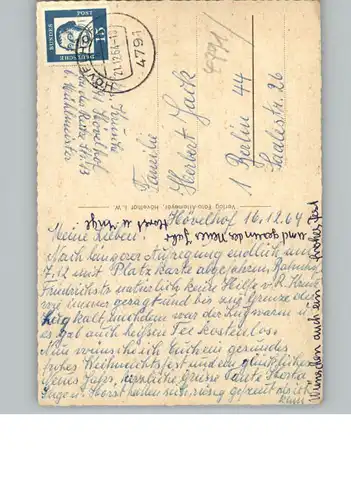 DEUTSCHE
BUNDES
POST
15
HÖVELHOF
21.12.64-18
4791
4791
Familie
Herbert Jack
1 Berlin 44
Saalestr. 26
Verlag Foto-Altemeyer, Hövelhof i. W.
Hövelhof 16.12.64
Meine Lieben!
Nach langerer Aufregung endlich um
7.12 mit Platzkarte abgefahren, Bahnhof
Friedrichstr. natürlich keine Hilfe
wie immer gesagt und bis zur Grenze
kalt, nachdem war der Zug warm u.
es gab auch heißen Tee kostenlos.
Nun wünsche ich Euch ein gesundes
frohes Weihnachtsfest und ein glückliches
neues Jahr, herzliche Grüsse Tante Herta
Inge u. Horst haben sich riesig gefreut als ich
kam
Wünschen auch ein frohes Fest
und gesundes Neues Jahr
Horst u. Inge